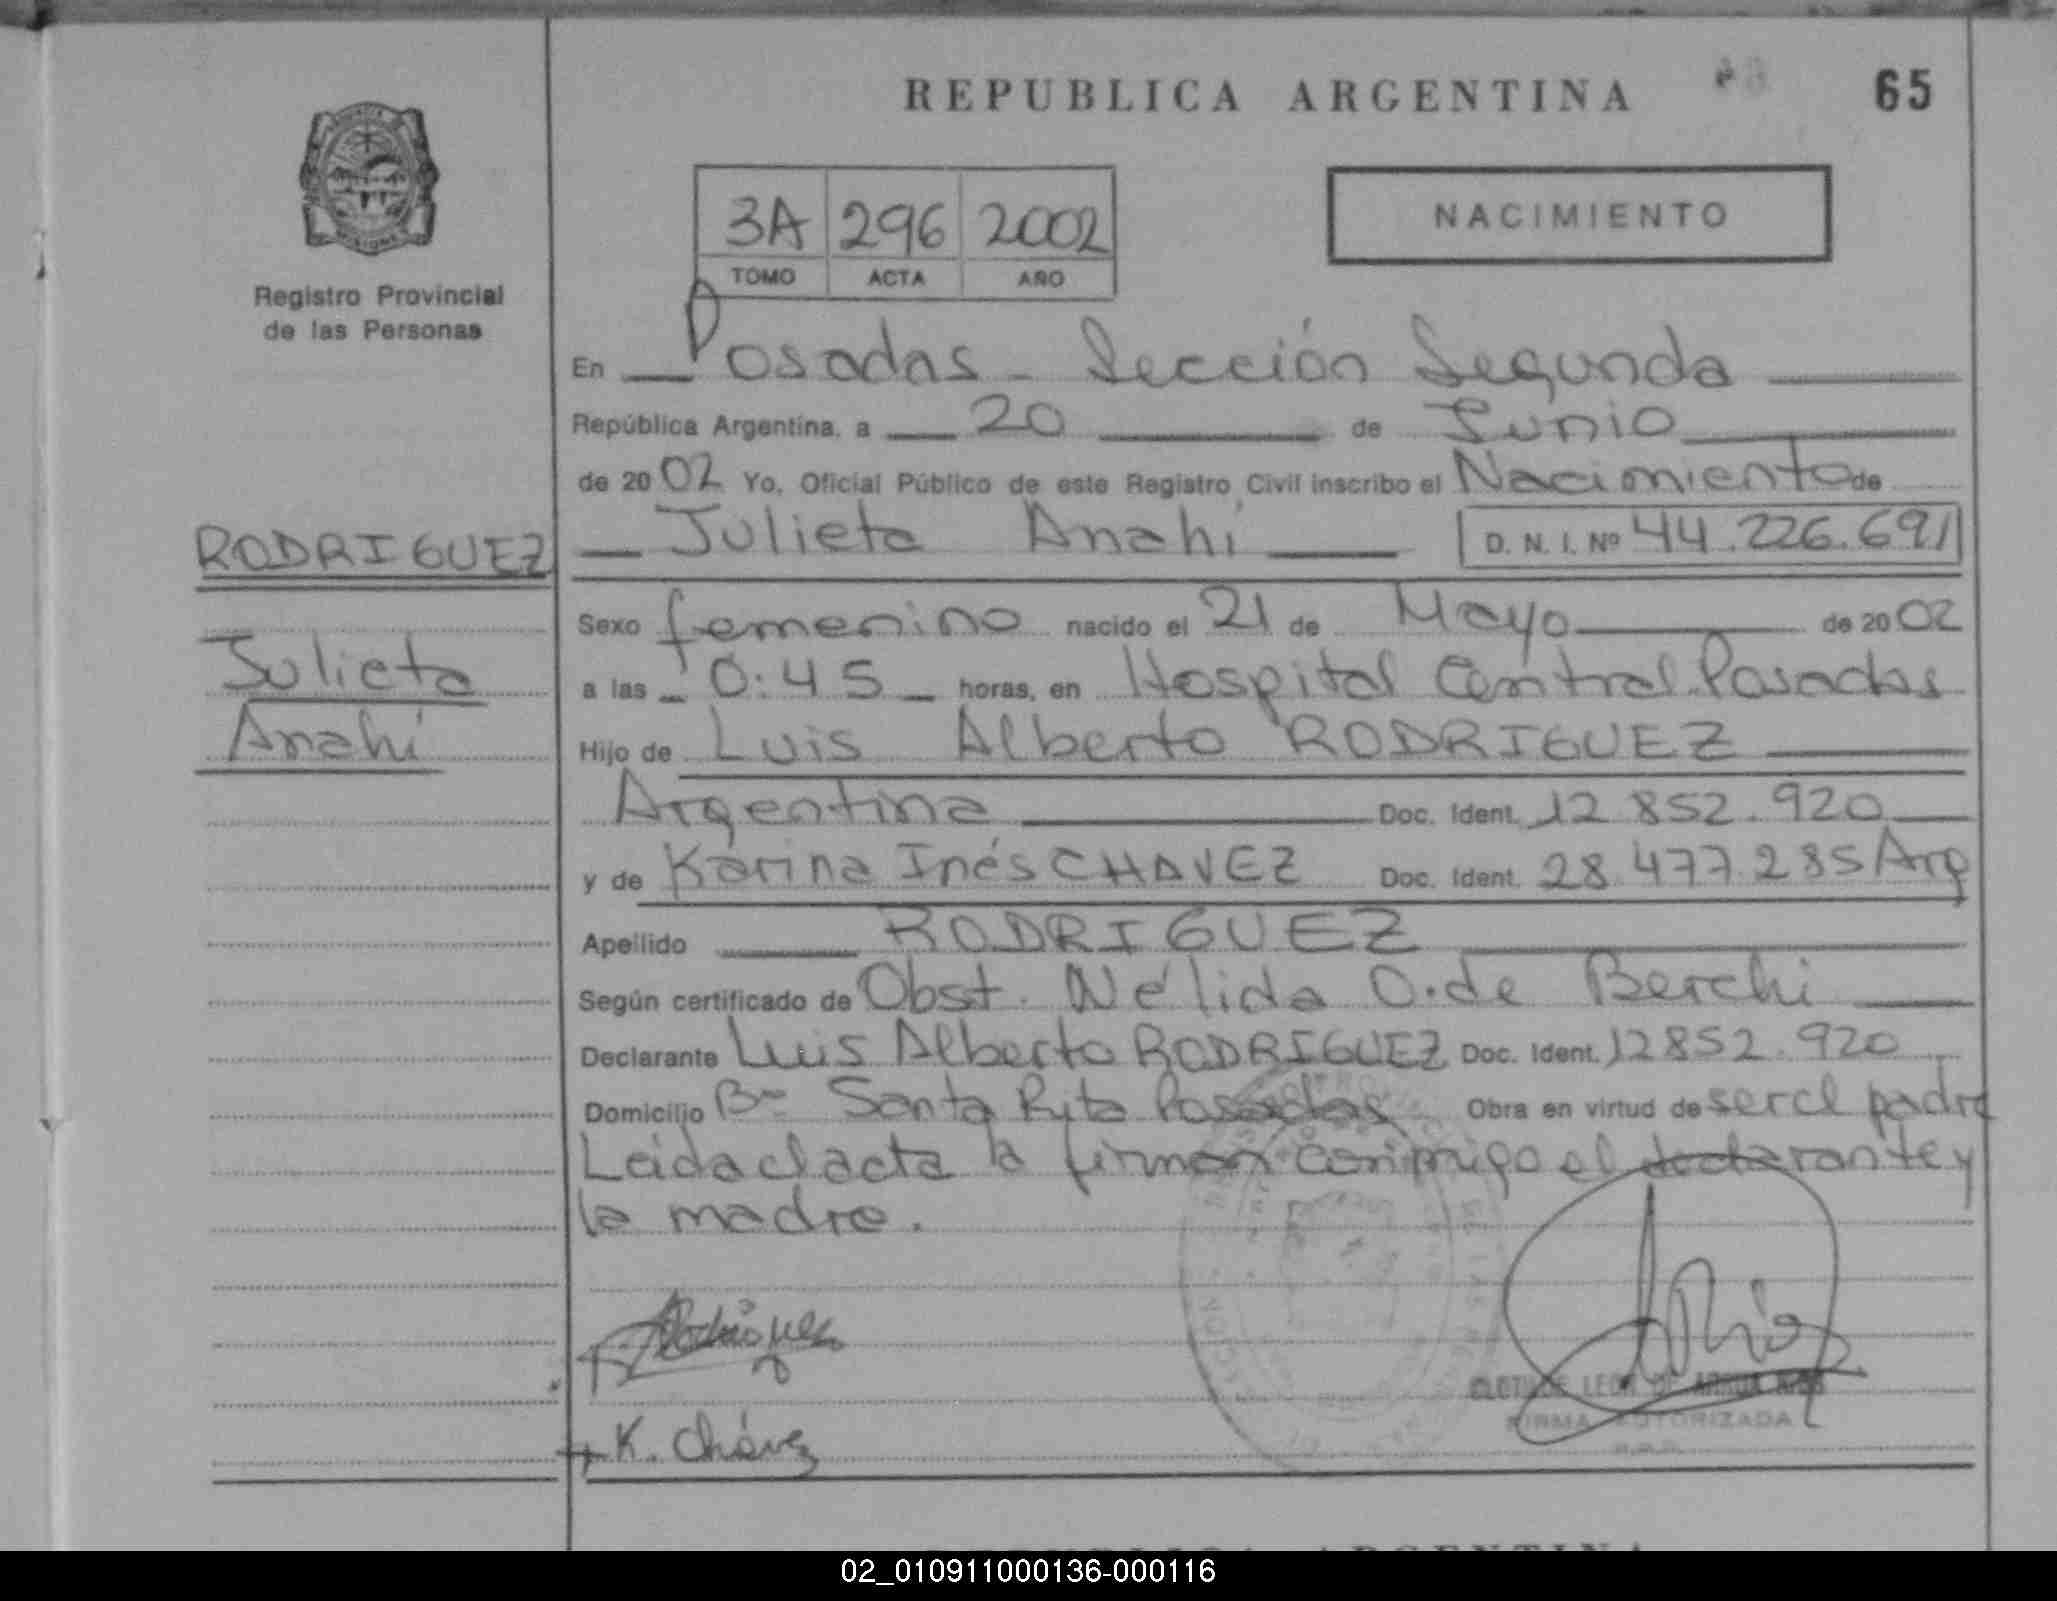 REPUBLICA ARGENTINA 65
3A 296 2002
TOMO ACTA AÑO
NACIMIENTO
Registro Provincial
de las Personas
En Posadas - Sección Segunda
República Argentina, a 20 de Junio
de 2002 Yo, Oficial Público de este Registro Civil inscribo el Nacimiento de
RODRIGUEZ
Julieta Anahí D. N. I. Nº 44.226.691
Sexo femenino nacido el 21 de Mayo de 2002
Julieta
a las 0:45 horas, en Hospital Central Posadas
Anahí
Hijo de Luis Alberto RODRIGUEZ
Argentina Doc. Ident. 12 852.920
y de Karina Inés CHAVEZ Doc. Ident. 28.477.285 Arg
Apellido RODRIGUEZ
Según certificado de Obst. Nélida O. de Berchi
Declarante Luis Alberto RODRIGUEZ Doc. Ident. 12852.920
Domicilio Bº Santa Rita Posadas Obra en virtud de ser el padre
Leida el acta la firman conmigo el declarante y
la madre.
Rodriguez
K. Chávez
CLOTILDE LEON DE
FIRMA AUTORIZADA
02_010911000136-000116